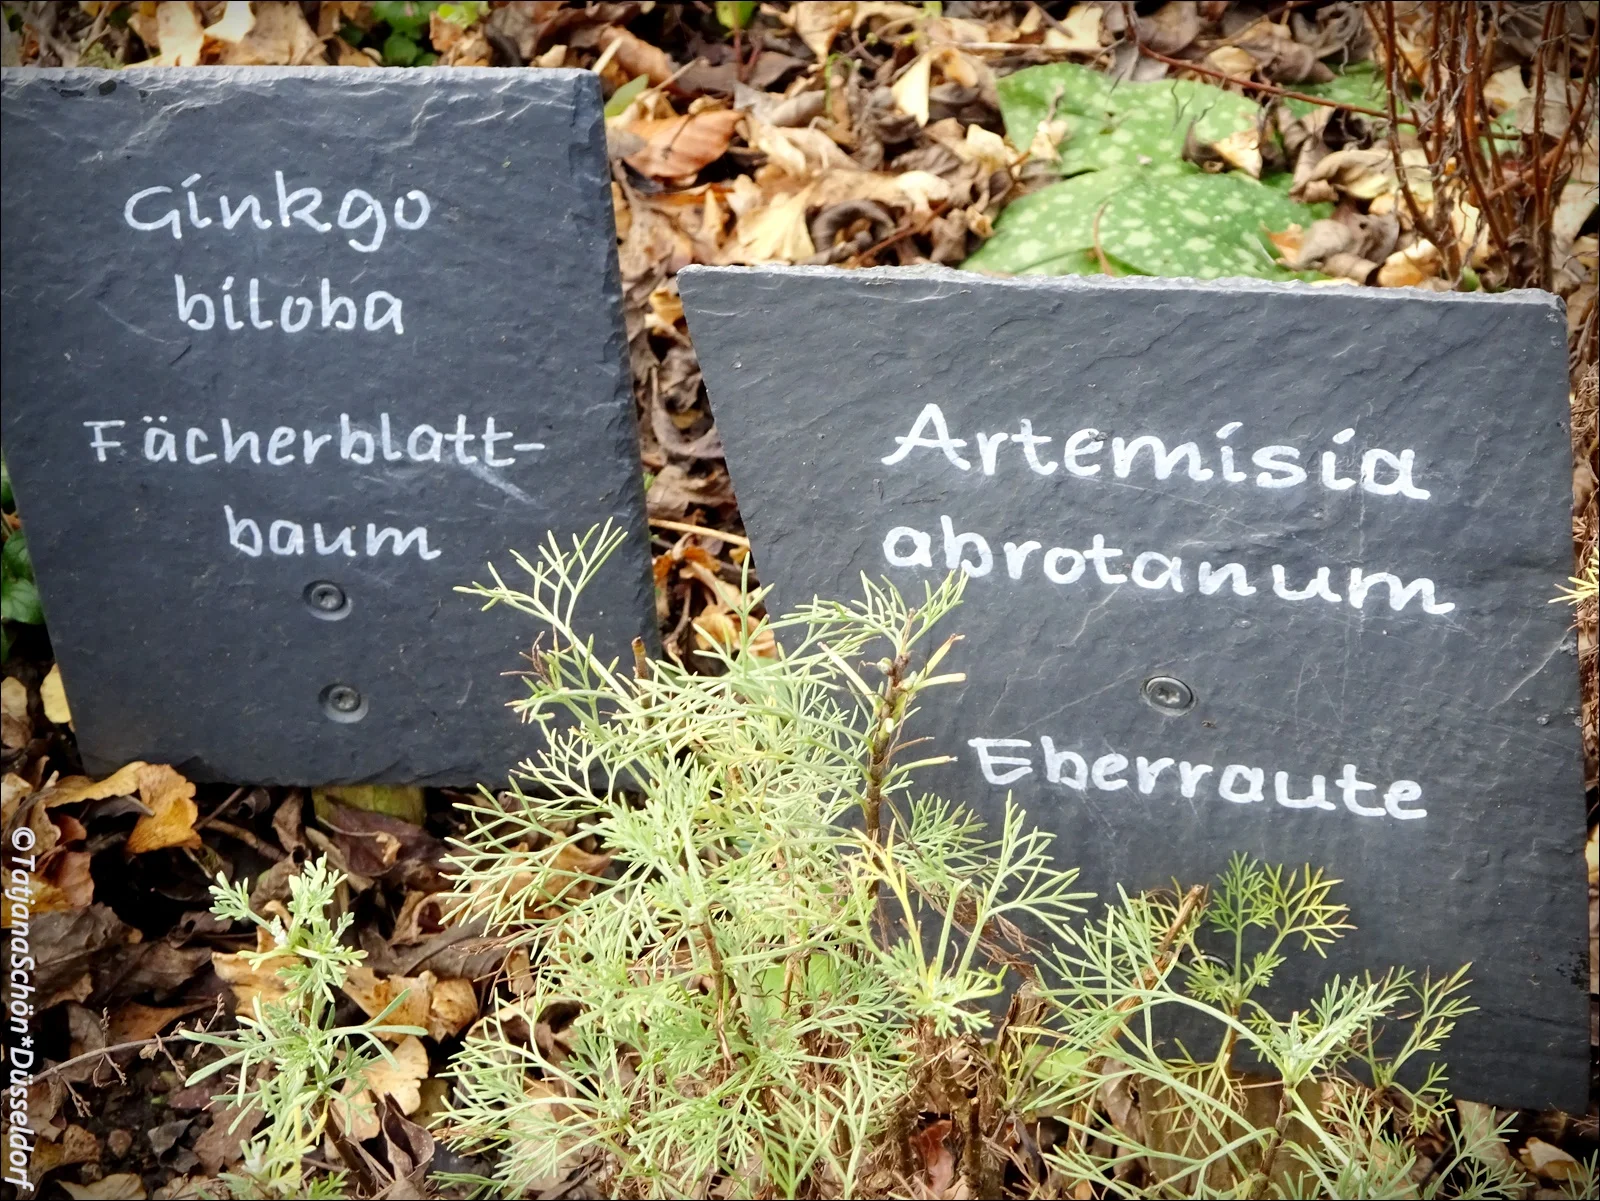 Ginkgo
biloba
Fächerblatt-
baum
Artemisia
abrotanum
Eberraute
©TatjanaSchön*Düsseldorf